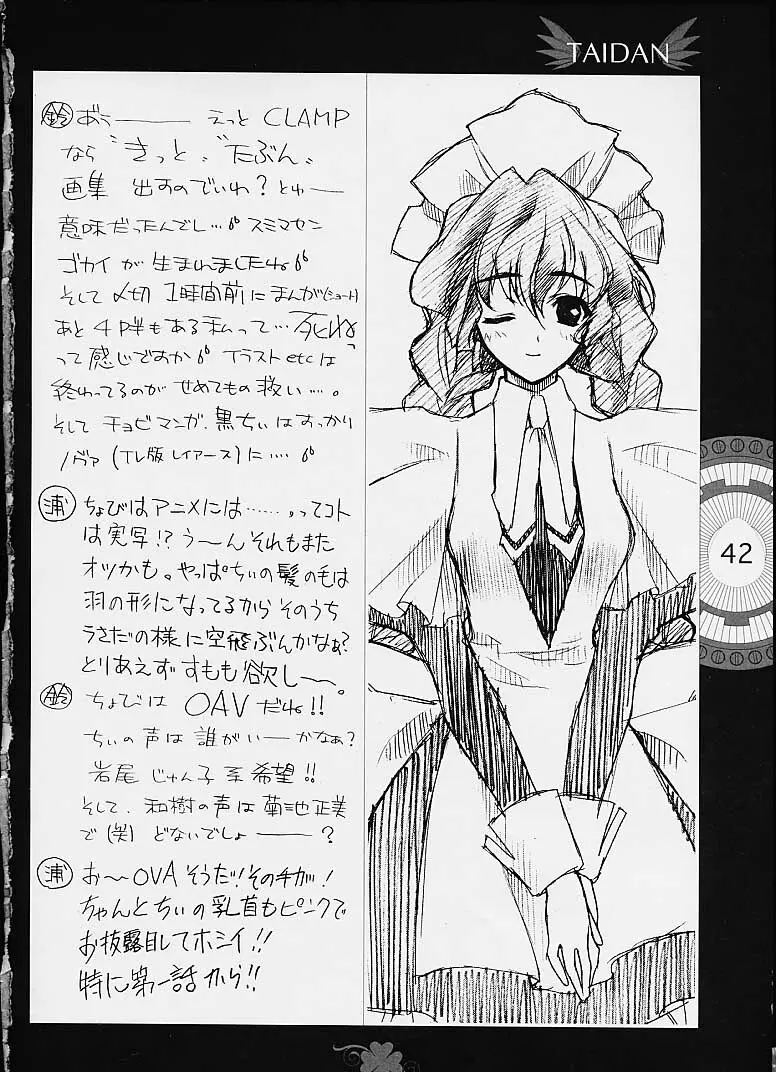 TAIDAN
鈴 あぅ―― えっと CLAMP
なら "きっと、" "たぶん、
画集 出すのでいわ?とゅー
意味だったんでし…6゙ スミマセン
ゴカイが 生まれましたね6゙
そして 〆切 1時間前に まんが(ショート)
あと4P半もある私って…死ねっ
って感じですか6゙ イラスト etc は
終わってるのが せめてもの救い…。
そして チョビマンガ、黒ちぃはすっかり
ノヴァ (TV版レイアース)に…. 6゙
浦 ちょびはアニメには……、ってコト
は実写!? う〜ん それもまた
オツかも。やっぱちぃの髪の毛は
羽の形になってるから そのうち
うさだの様に空飛ぶんかなぁ?
とりあえず すもも欲し〜。
鈴 ちょびは OAV だね!!
ちぃの声は 誰がいーかなぁ?
岩尾 じゅん子 系 希望!!
そして、和樹の声は菊池正美
で (笑) どないでしょ――?
浦 お〜 OVA そうだ!その手が!
ちゃんとちぃの乳首もピンクで
お披露目してホシイ!!
特に第一話から!!
42